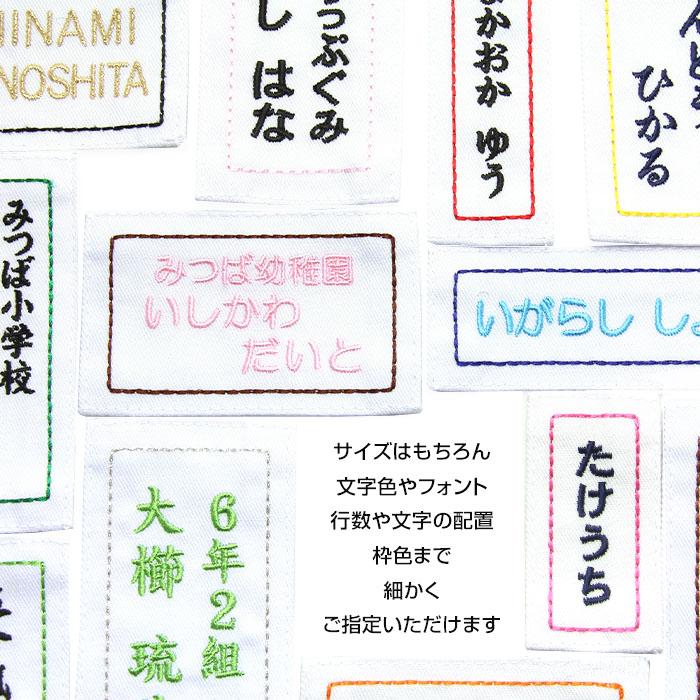 MINAMI
NOSHITA
っぷぐみ
し はな
なかおか ゆう
ひかる
みつば小学校
みつば幼稚園
いしかわ
だいと
いがらし しょ
サイズはもちろん
文字色やフォント
行数や文字の配置
枠色まで
細かく
ご指定いただけます
たけうち
6年2組
大櫛 琉